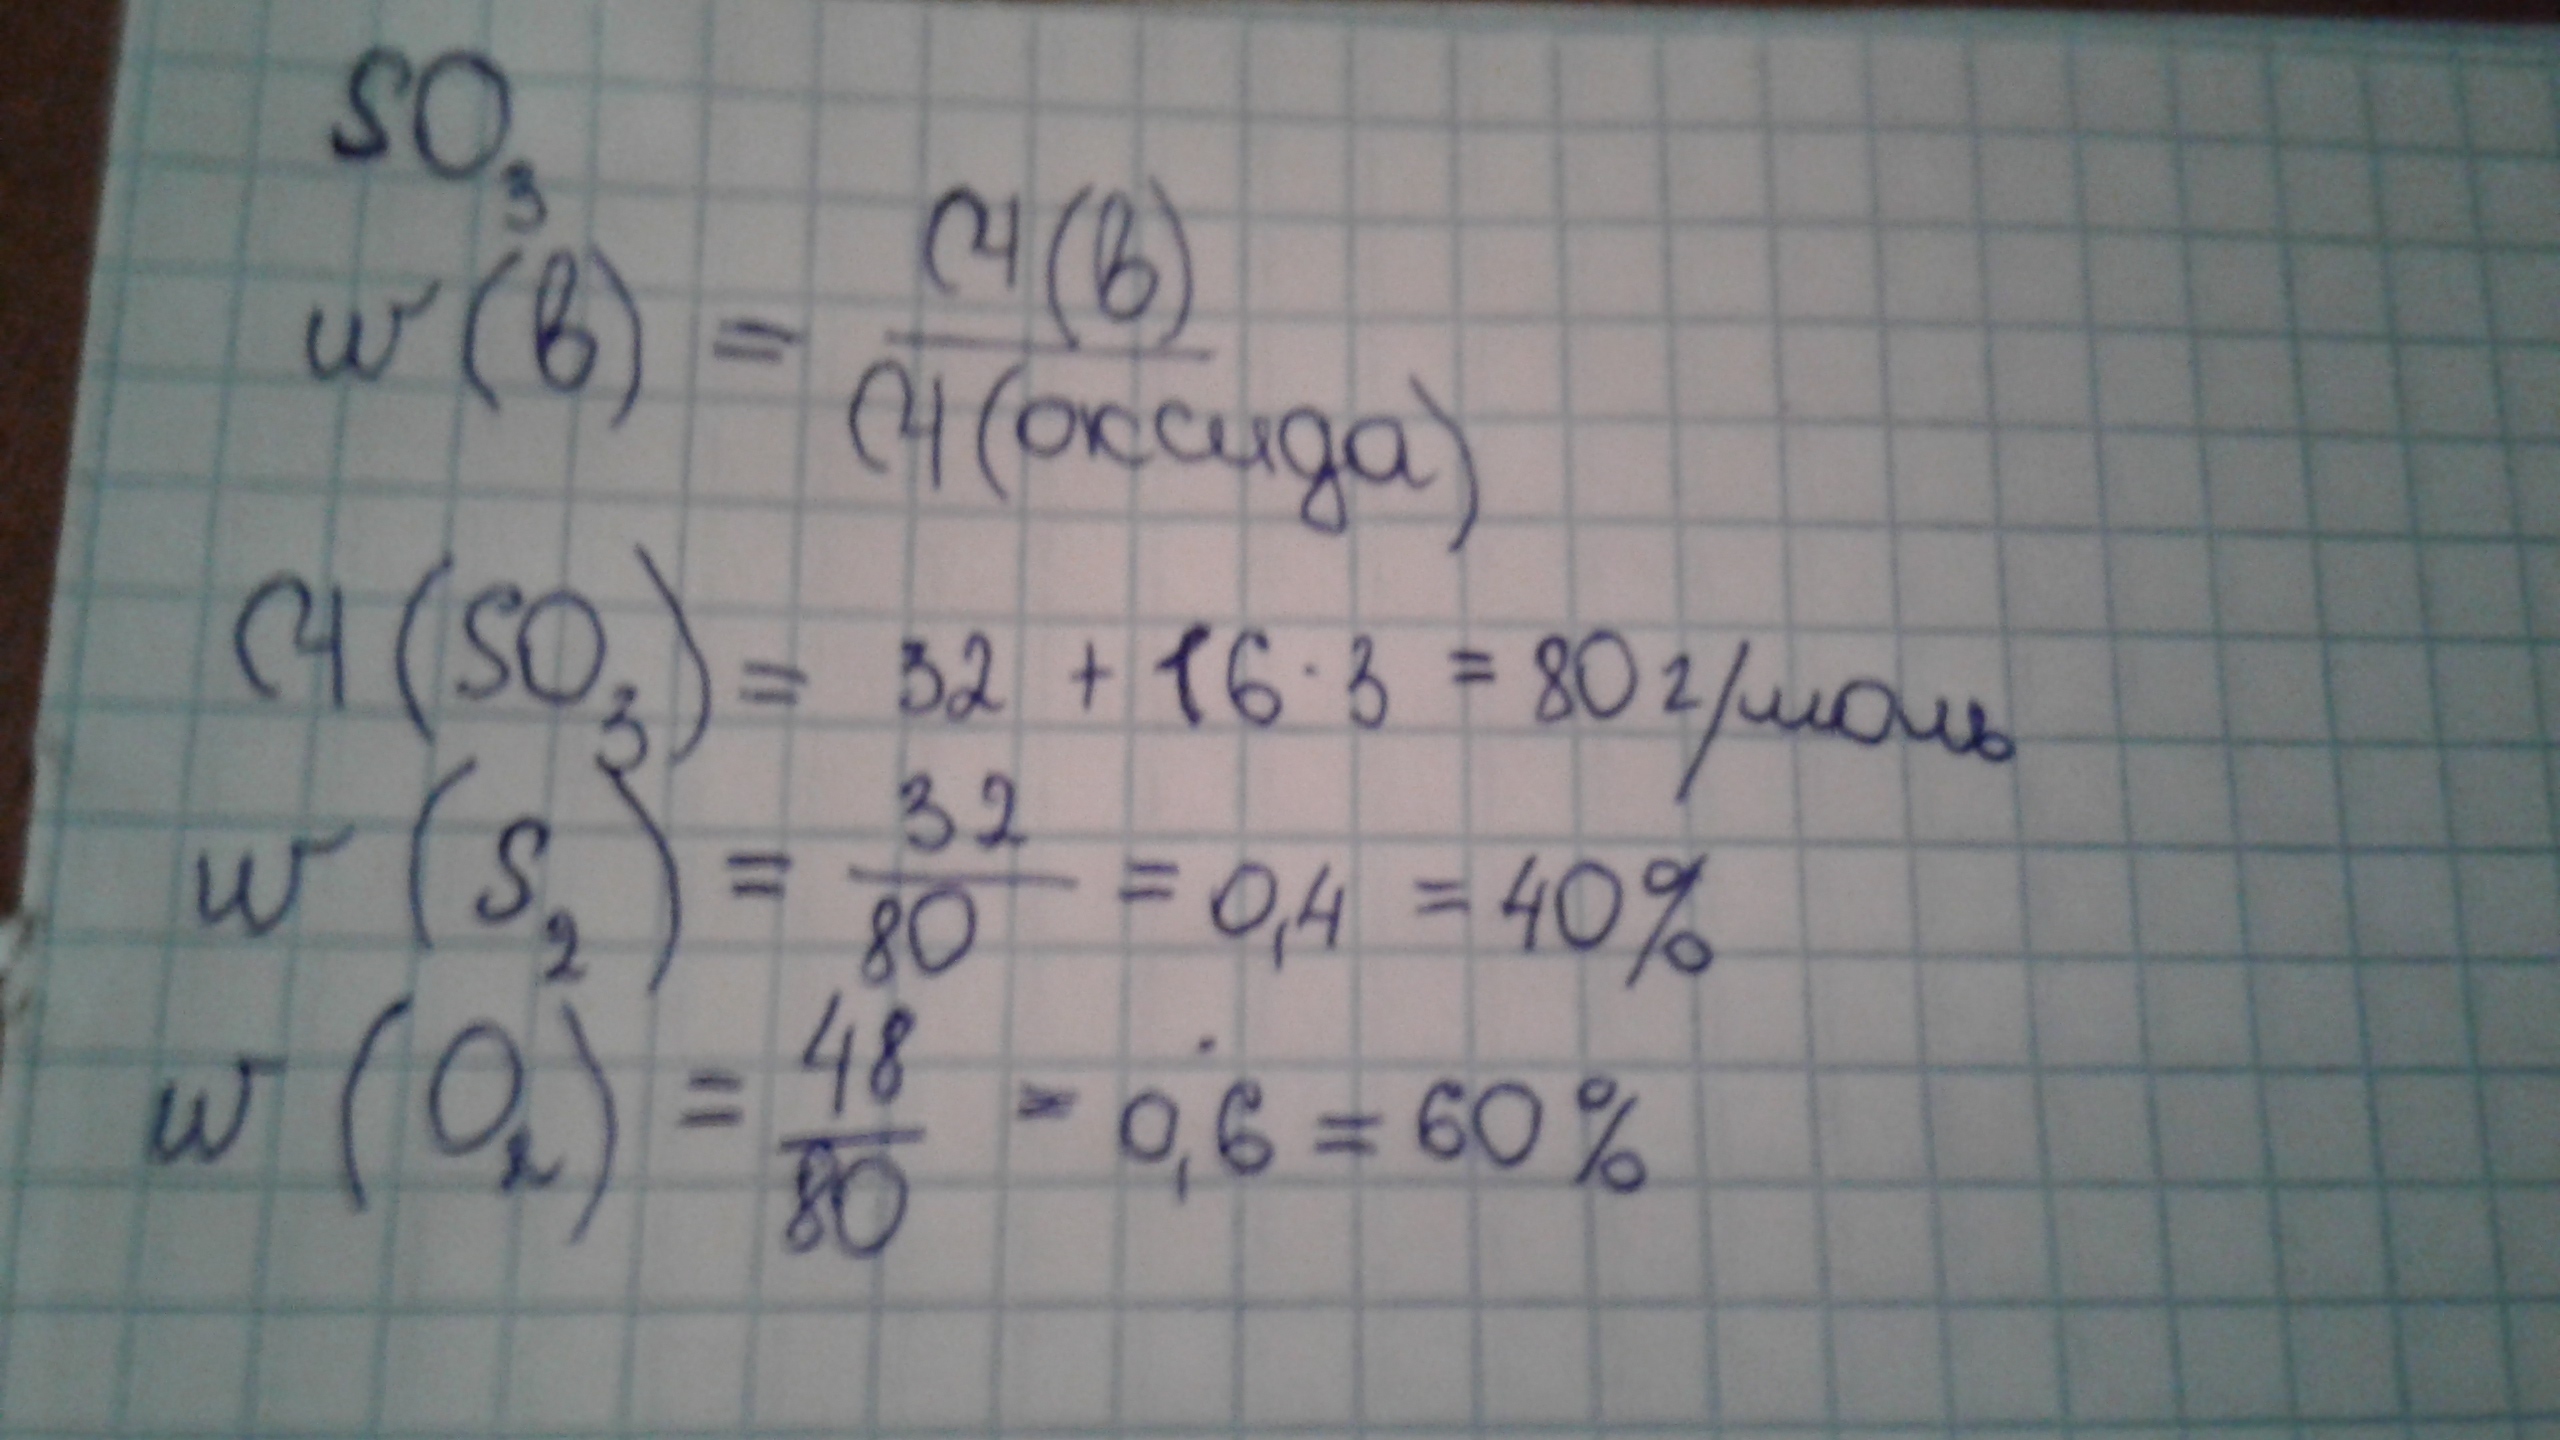 SO₃
w(в) = М(в) / М(оксида)
М(SO₃) = 32 + 16·3 = 80 г/моль
w(S₂) = 32/80 = 0,4 = 40%
w(O₂) = 48/80 = 0,6 = 60%